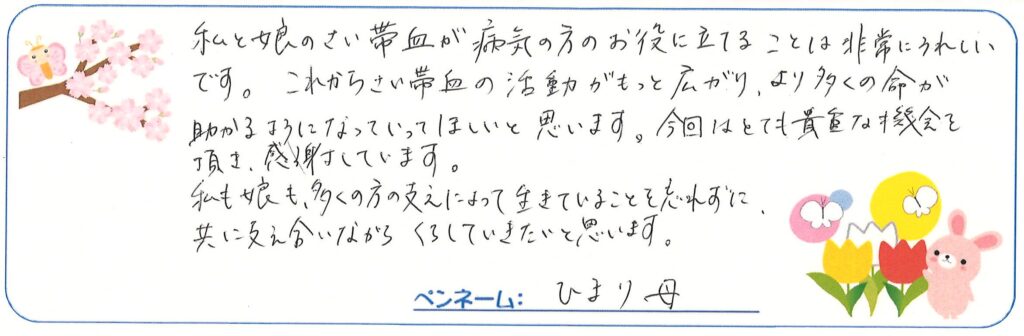 私と娘のさい帯血が病気の方のお役に立てることは非常にうれしい
です。これからさい帯血の活動がもっと広がり、より多くの命が
助かるようになっていってほしいと思います。今回はとても貴重な機会を
頂き、感謝しています。
私も娘も、多くの方の支えによって生きていることを忘れずに、
共に支え合いながらくらしていきたいと思います。
ペンネーム: ひまり母